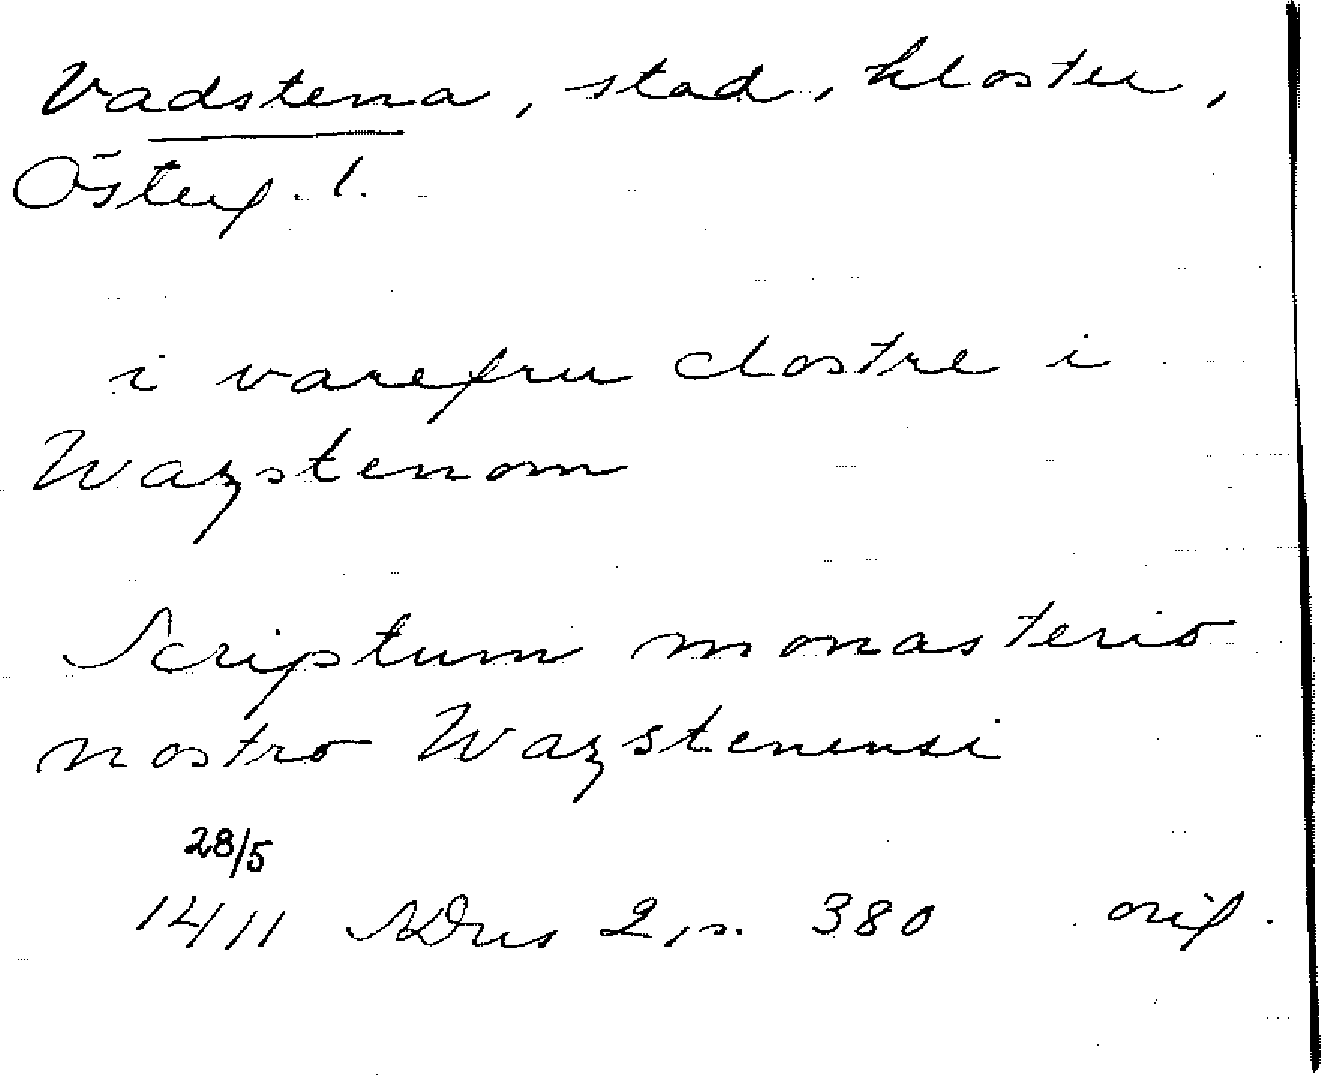 Vadstena, stad, kloster,
Österg. l.
i varefru clostre i
Wazstenom
Scriptum monasterio
nostro Wazstenensi
28/5
1411 SDns 2, s. 380 orig.